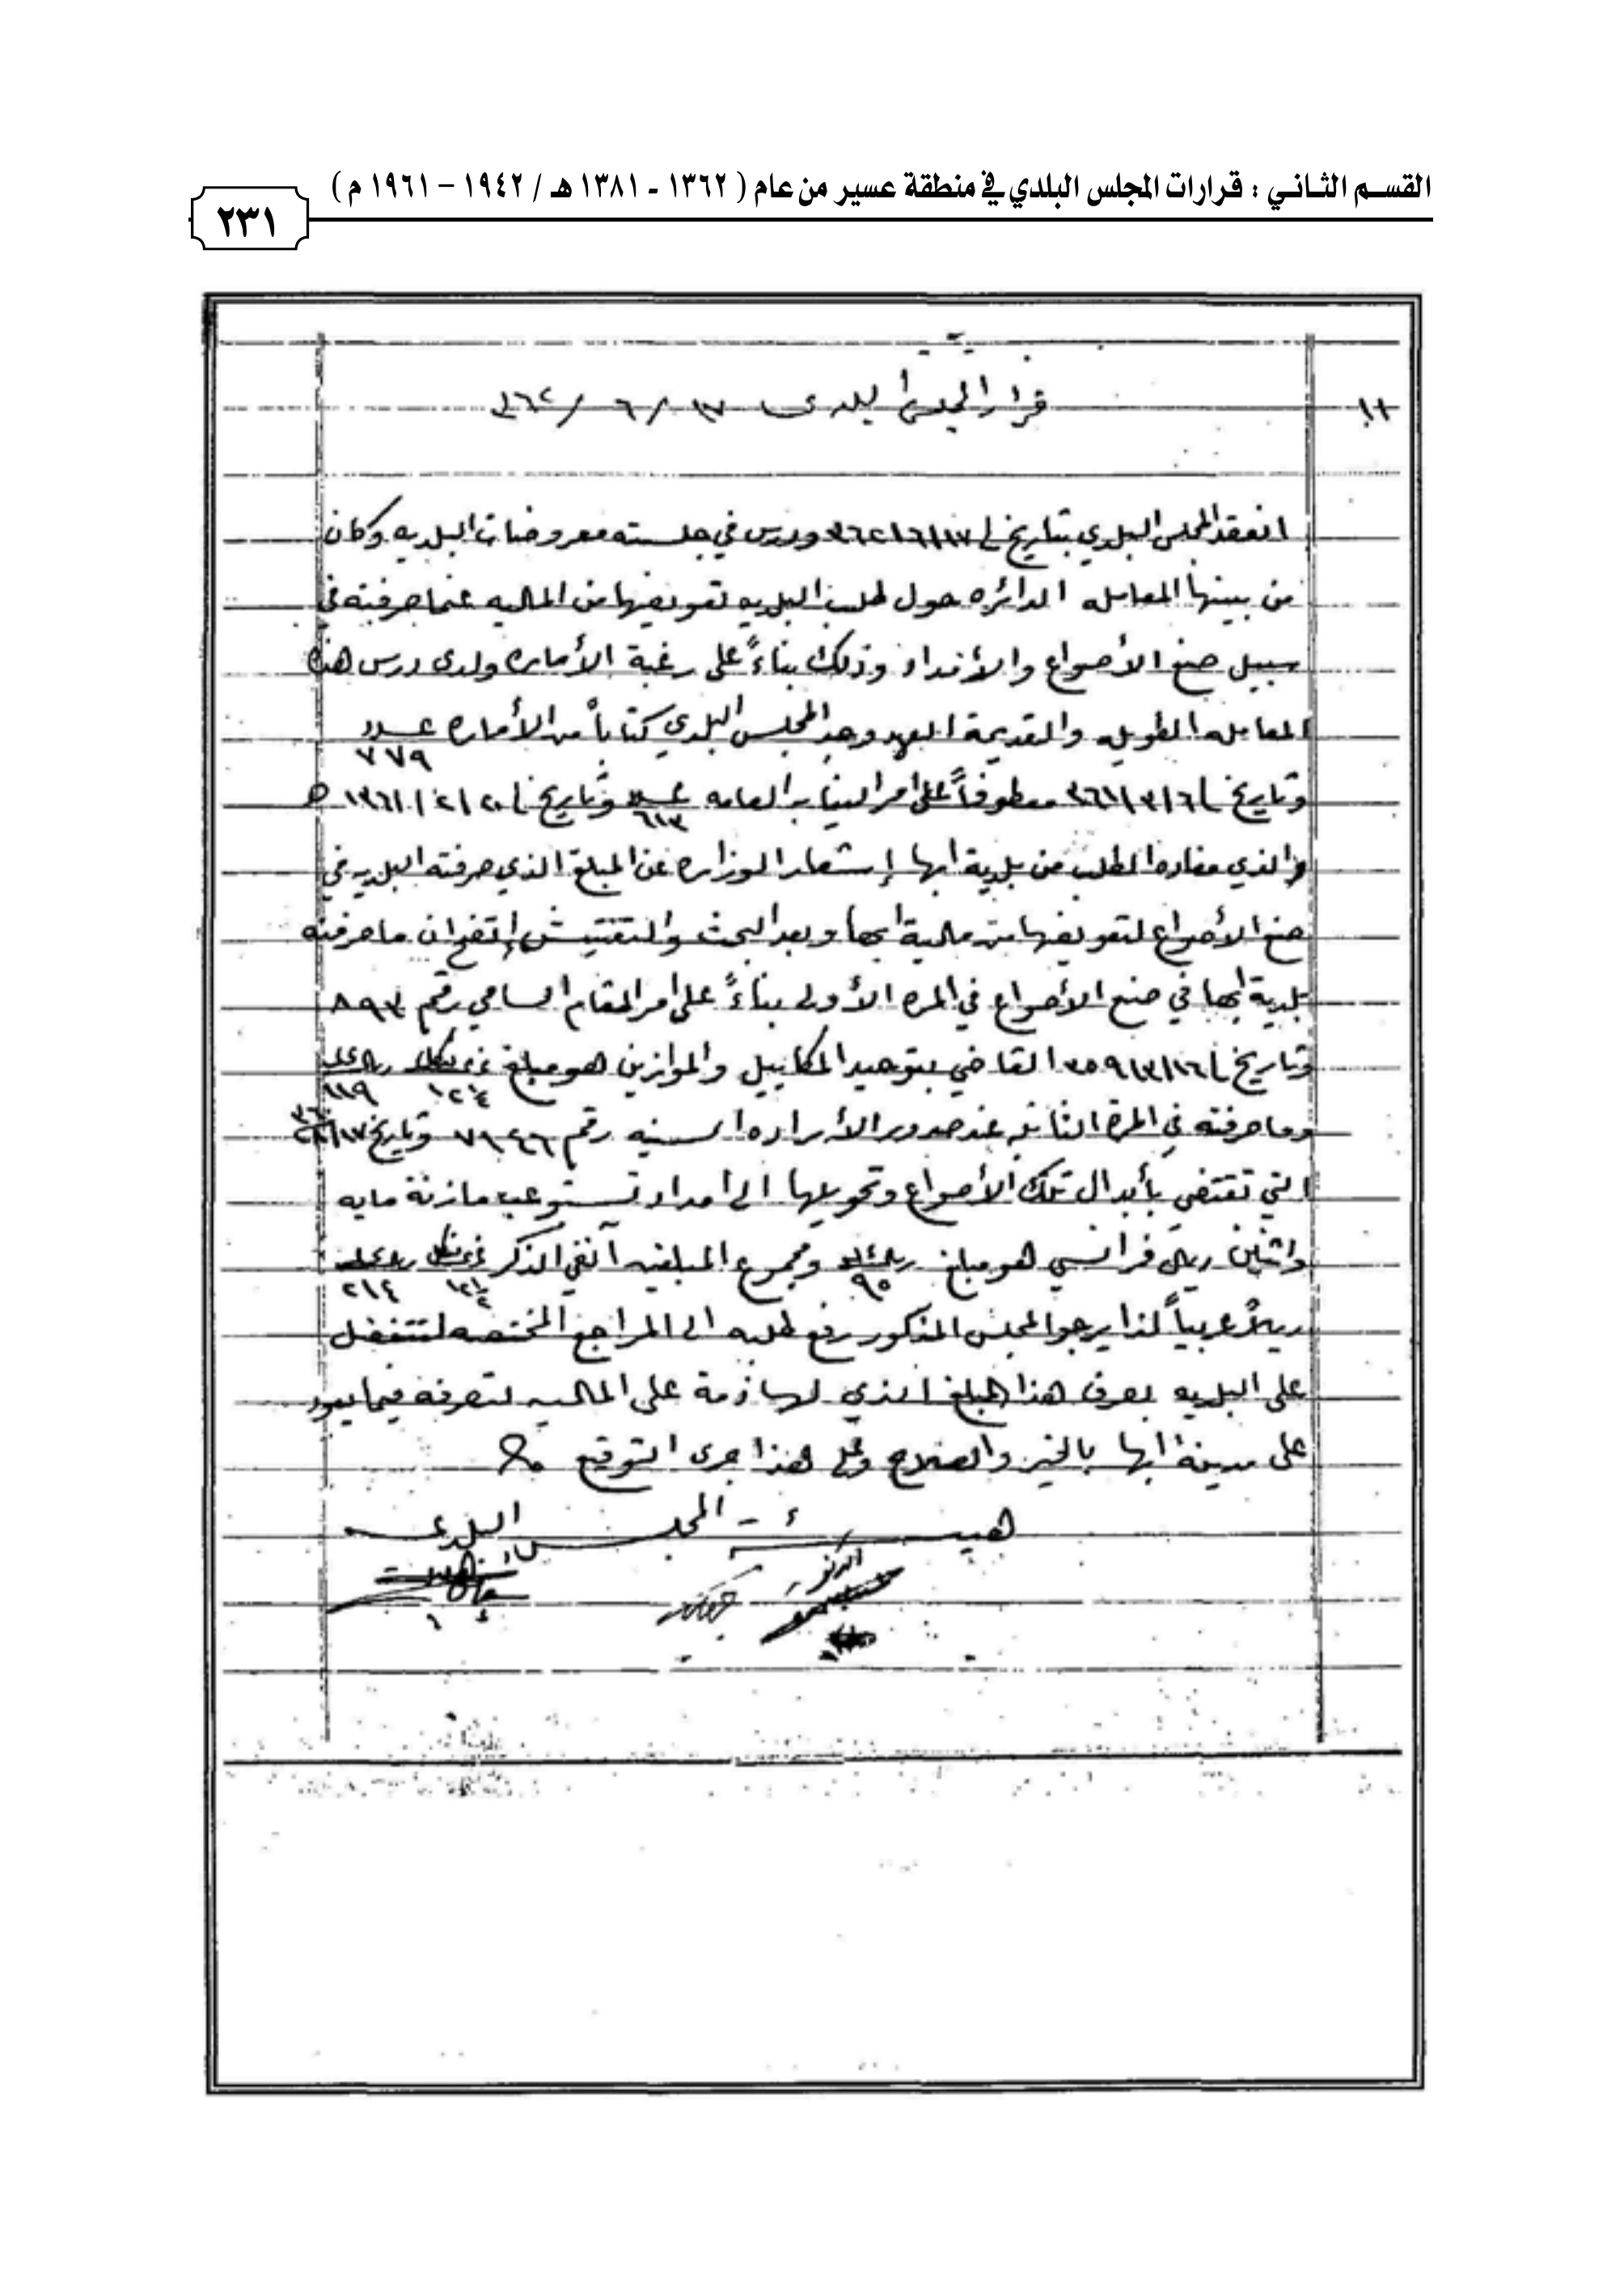 القسم الثاني : قرارات المجلس البلدي في منطقة عسير من عام ( ١٣٦٢ - ١٣٨١ هـ / ١٩٤٢ – ١٩٦١ م )
٢٣١
١١
قرار المجلس البلدي ١٧ / ٦ / ٣٦٢
انعقد المجلس البلدي بتاريخ ١٧/٦/٣٦٢ ودرس في جلسته معروضات البلديه وكان
من بينها المعامله الدائره حول طلب البلديه تعويضها من الماليه عما صرفته في
سبيل صنع الأصواع والأنداد وذلك بناءً على رغبة الأماره ولدى درس هذه
المعامله الطويله والقديمة العهد وجد المجلس البلدي كتاباً من الأماره عدد ٧٧٩
وتاريخ ٦/٣/٣٦١ معطوفاً على امر النيابه العامه عدد ٦١٣ وتاريخ ٢٠/٢/١٣٦١ هـ
والذي مفاده الطلب من بلدية ابها إشعار الوزاره عن المبلغ الذي صرفته البلديه في
صنع الأصواع لتعويضها من مالية ابها وبعد البحث والتفتيش إتضح ان ما صرفته
بلدية ابها في صنع الأصواع في المره الأولى بناءً على امر المقام السامي رقم ٨٩٣
وتاريخ ١٦/٣/٣٥٩ القاضي بتوحيد المكاييل والموازين هو مبلغ ١١٩
وما صرفته في المرة الثانيه عند صدور الأراده السنيه رقم ٧٩٤٦٦ وتاريخ
التي تقتضي بأبدال تلك الأصواع وتحويلها الى امداد تستوعب مازنة مايه
واثنين ريال فرانسي هو مبلغ ٩٥ ومجموع المبلغين آنفي الذكر ٢١٤
ريالاً عربياً لذا يرجو المجلس المذكور رفع طلبه الى المراجع المختصه لتتفضل
على البلديه بصرف هذا المبلغ الذي لها ذمة على الماليه لتصرفه فيما يعود
على مدينة ابها بالخير والصلاح وعلى هذا جرى التوقيع
هيئة المجلس البلدي